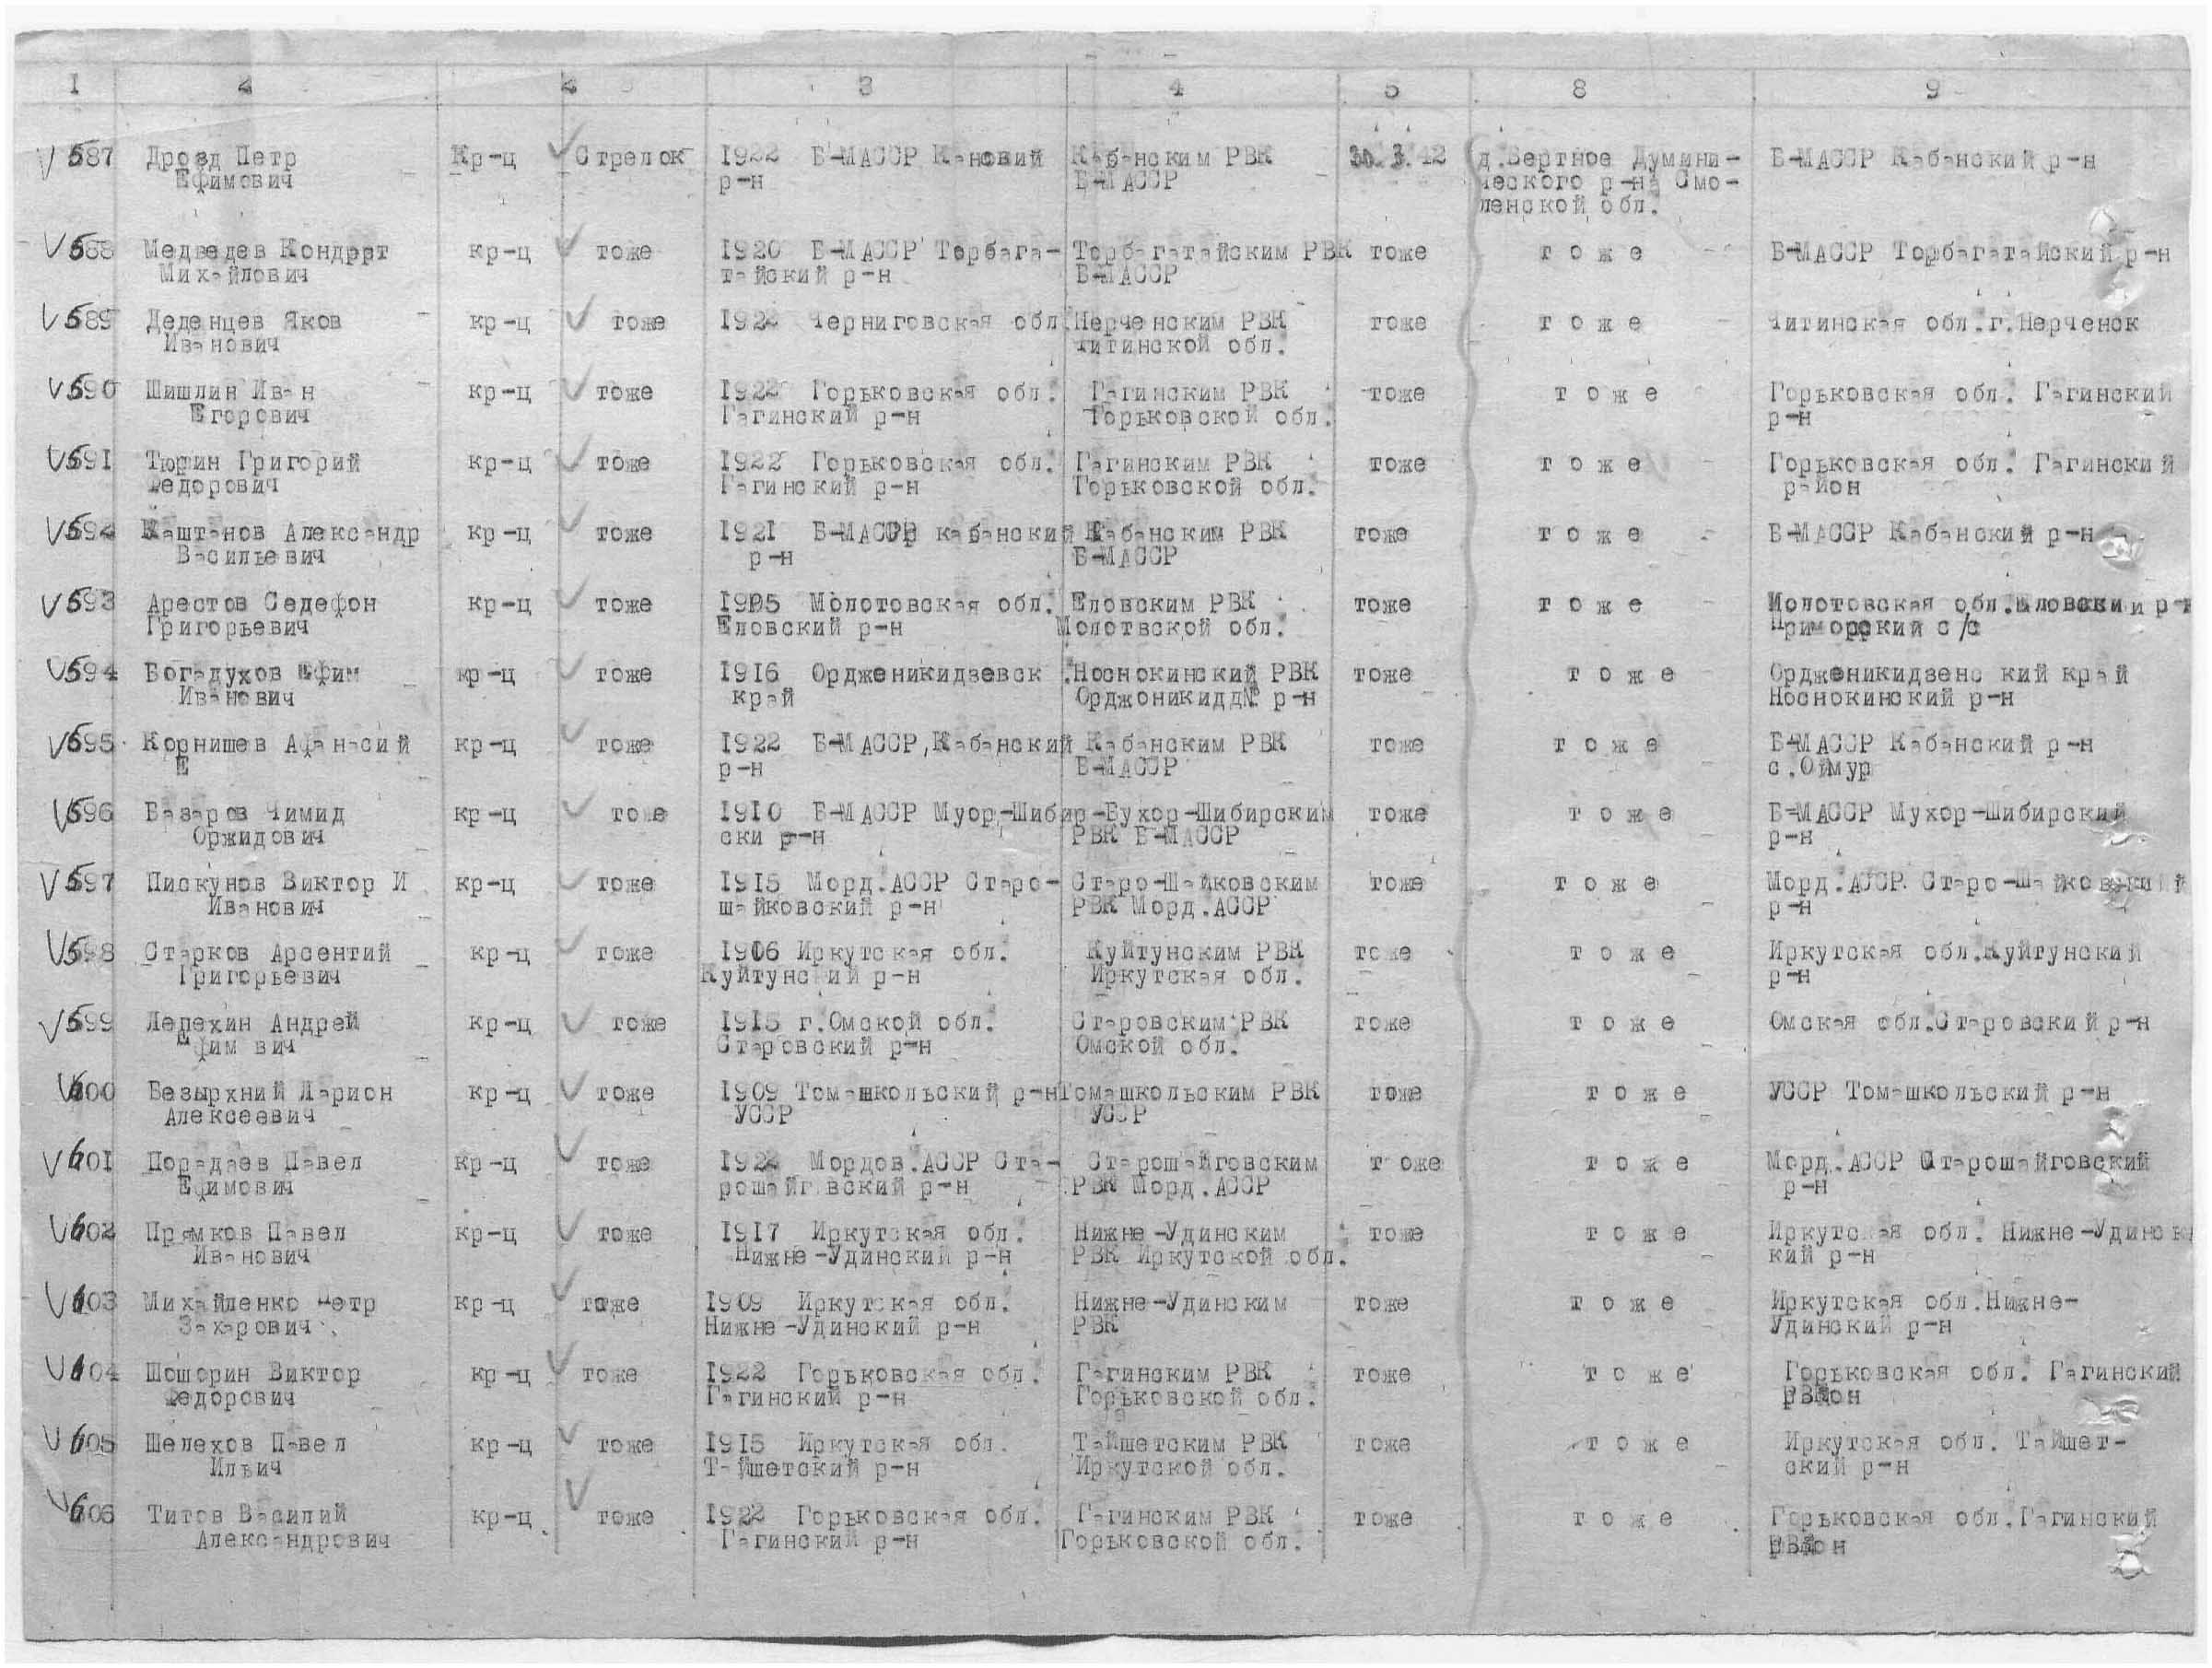 I 2 2 3 4 5 8 9
587 Дрозд Петр Кр-ц Стрелок 1922 Б-МАССР Кановий Кабанским РВК 30.3.42 д.Вертное Думини- Б-МАССР Кабанский р-н
Ефимович р-н Б-МАССР ческого р-на Смо-
ленской обл.
588 Медведев Кондррт кр-ц тоже 1920 Б-МАССР Торбага- Торбагатайским РВК тоже т о ж е Б-МАССР Торбагатайский р-н
Михайлович тайский р-н Б-МАССР
589 Деденцев Яков кр-ц тоже 1922 Черниговская обл. Нерченским РВК тоже т о ж е Читинская обл.г.Нерченск
Иванович Читинской обл.
590 Шишлин Иван кр-ц тоже 1922 Горьковская обл. Гагинским РВК тоже т о ж е Горьковская обл. Гагинский
Егорович Гагинский р-н Горьковской обл. р-н
591 Тюрин Григорий кр-ц тоже 1922 Горьковская обл. Гагинским РВК тоже т о ж е Горьковская обл. Гагинский
Федорович Гагинский р-н Горьковской обл. район
592 Каштанов Александр кр-ц тоже 1921 Б-МАССР кабанский Кабанским РВК тоже т о ж е Б-МАССР Кабанский р-н
Васильевич р-н Б-МАССР
593 Арестов Седефон кр-ц тоже 1905 Молотовская обл. Еловским РВК тоже т о ж е Молотовская обл.Еловский р-н
Григорьевич Еловский р-н Молотвской обл. Приморский с/с
594 Богадухов Ефим кр-ц тоже 1916 Ордженикидзевск. Носнокинский РВК тоже т о ж е Ордженикидзенс кий край
Иванович край Орджоникидд р-н Носнокинский р-н
595 Корнишев Афанасий кр-ц тоже 1922 Б-МАССР,Кабанский Кабанским РВК тоже т о ж е Б-МАССР Кабанский р-н
Е р-н Б-МАССР с.Оймур
596 Базаров Чимид кр-ц тоже 1910 Б-МАССР Муор-Шибир-Бухор-Шибирским тоже т о ж е Б-МАССР Мухор-Шибирский
Оржидович ски р-н РВК Б-МАССР р-н
597 Пискунов Виктор И кр-ц тоже 1915 Морд.АССР Старо- Старо-Шайковским тоже т о ж е Морд.АССР Старо-Шайковский
Иванович шайковский р-н РВК Морд.АССР р-н
598 Старков Арсентий кр-ц тоже 1906 Иркутская обл. Куйтунским РВК тоже т о ж е Иркутская обл.Куйтунский
Григорьевич Куйтунский р-н Иркутская обл. р-н
599 Лепехин Андрей кр-ц тоже 1915 г.Омской обл. Старовским РВК тоже т о ж е Омская обл.Старовский р-н
Ефим вич Старовский р-н Омской обл.
600 Безырхний Ларион кр-ц тоже 1909 Томашкольский р-н Томашкольским РВК тоже т о ж е УССР Томашкольский р-н
Алексеевич УССР УССР
601 Порадаев Павел кр-ц тоже 1922 Мордов.АССР Ста- Старошайговским тоже т о ж е Морд.АССР Старошайговский
Ефимович рошайг.вский р-н РВК Морд.АССР р-н
602 Прямков Павел кр-ц тоже 1917 Иркутская обл. Нижне-Удинским тоже т о ж е Иркутская обл. Нижне-Удинск
Иванович Нижне-Удинский р-н РВК Иркутской обл. кий р-н
603 Михайленко Петр кр-ц тоже 1909 Иркутская обл. Нижне-Удинским тоже т о ж е Иркутская обл.Нижне-
Захарович Нижне-Удинский р-н РВК Удинский р-н
604 Шошорин Виктор кр-ц тоже 1922 Горьковская обл. Гагинским РВК тоже т о ж е Горьковская обл. Гагинский
Федорович Гагинский р-н Горьковской обл. район
605 Шелехов Павел кр-ц тоже 1915 Иркутская обл. Тайшетским РВК тоже т о ж е Иркутская обл. Тайшет-
Ильич Тайшетский р-н Иркутской обл. ский р-н
606 Титов Василий кр-ц тоже 1922 Горьковская обл. Гагинским РВК тоже т о ж е Горьковская обл.Гагинский
Александрович Гагинский р-н Горьковской обл. район